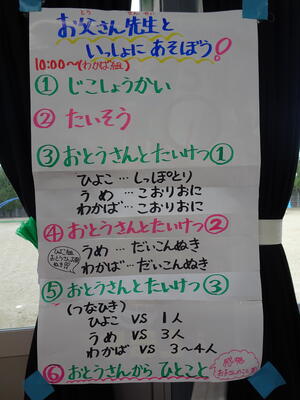 お父さん先生と
いっしょに あそぼう!
10:00〜(わかば組)
① じこしょうかい
② たいそう
③ おとうさんとたいけつ①
ひよこ…しっぽとり
うめ…こおりおに
わかば…こおりおに
④ おとうさんとたいけつ②
うめ…だいこんぬき
わかば…だいこんぬき
⑤ おとうさんとたいけつ③
(つなひき)
ひよこ VS 1人
うめ VS 3人
わかば VS 3〜4人
⑥ おとうさんから ひとこと